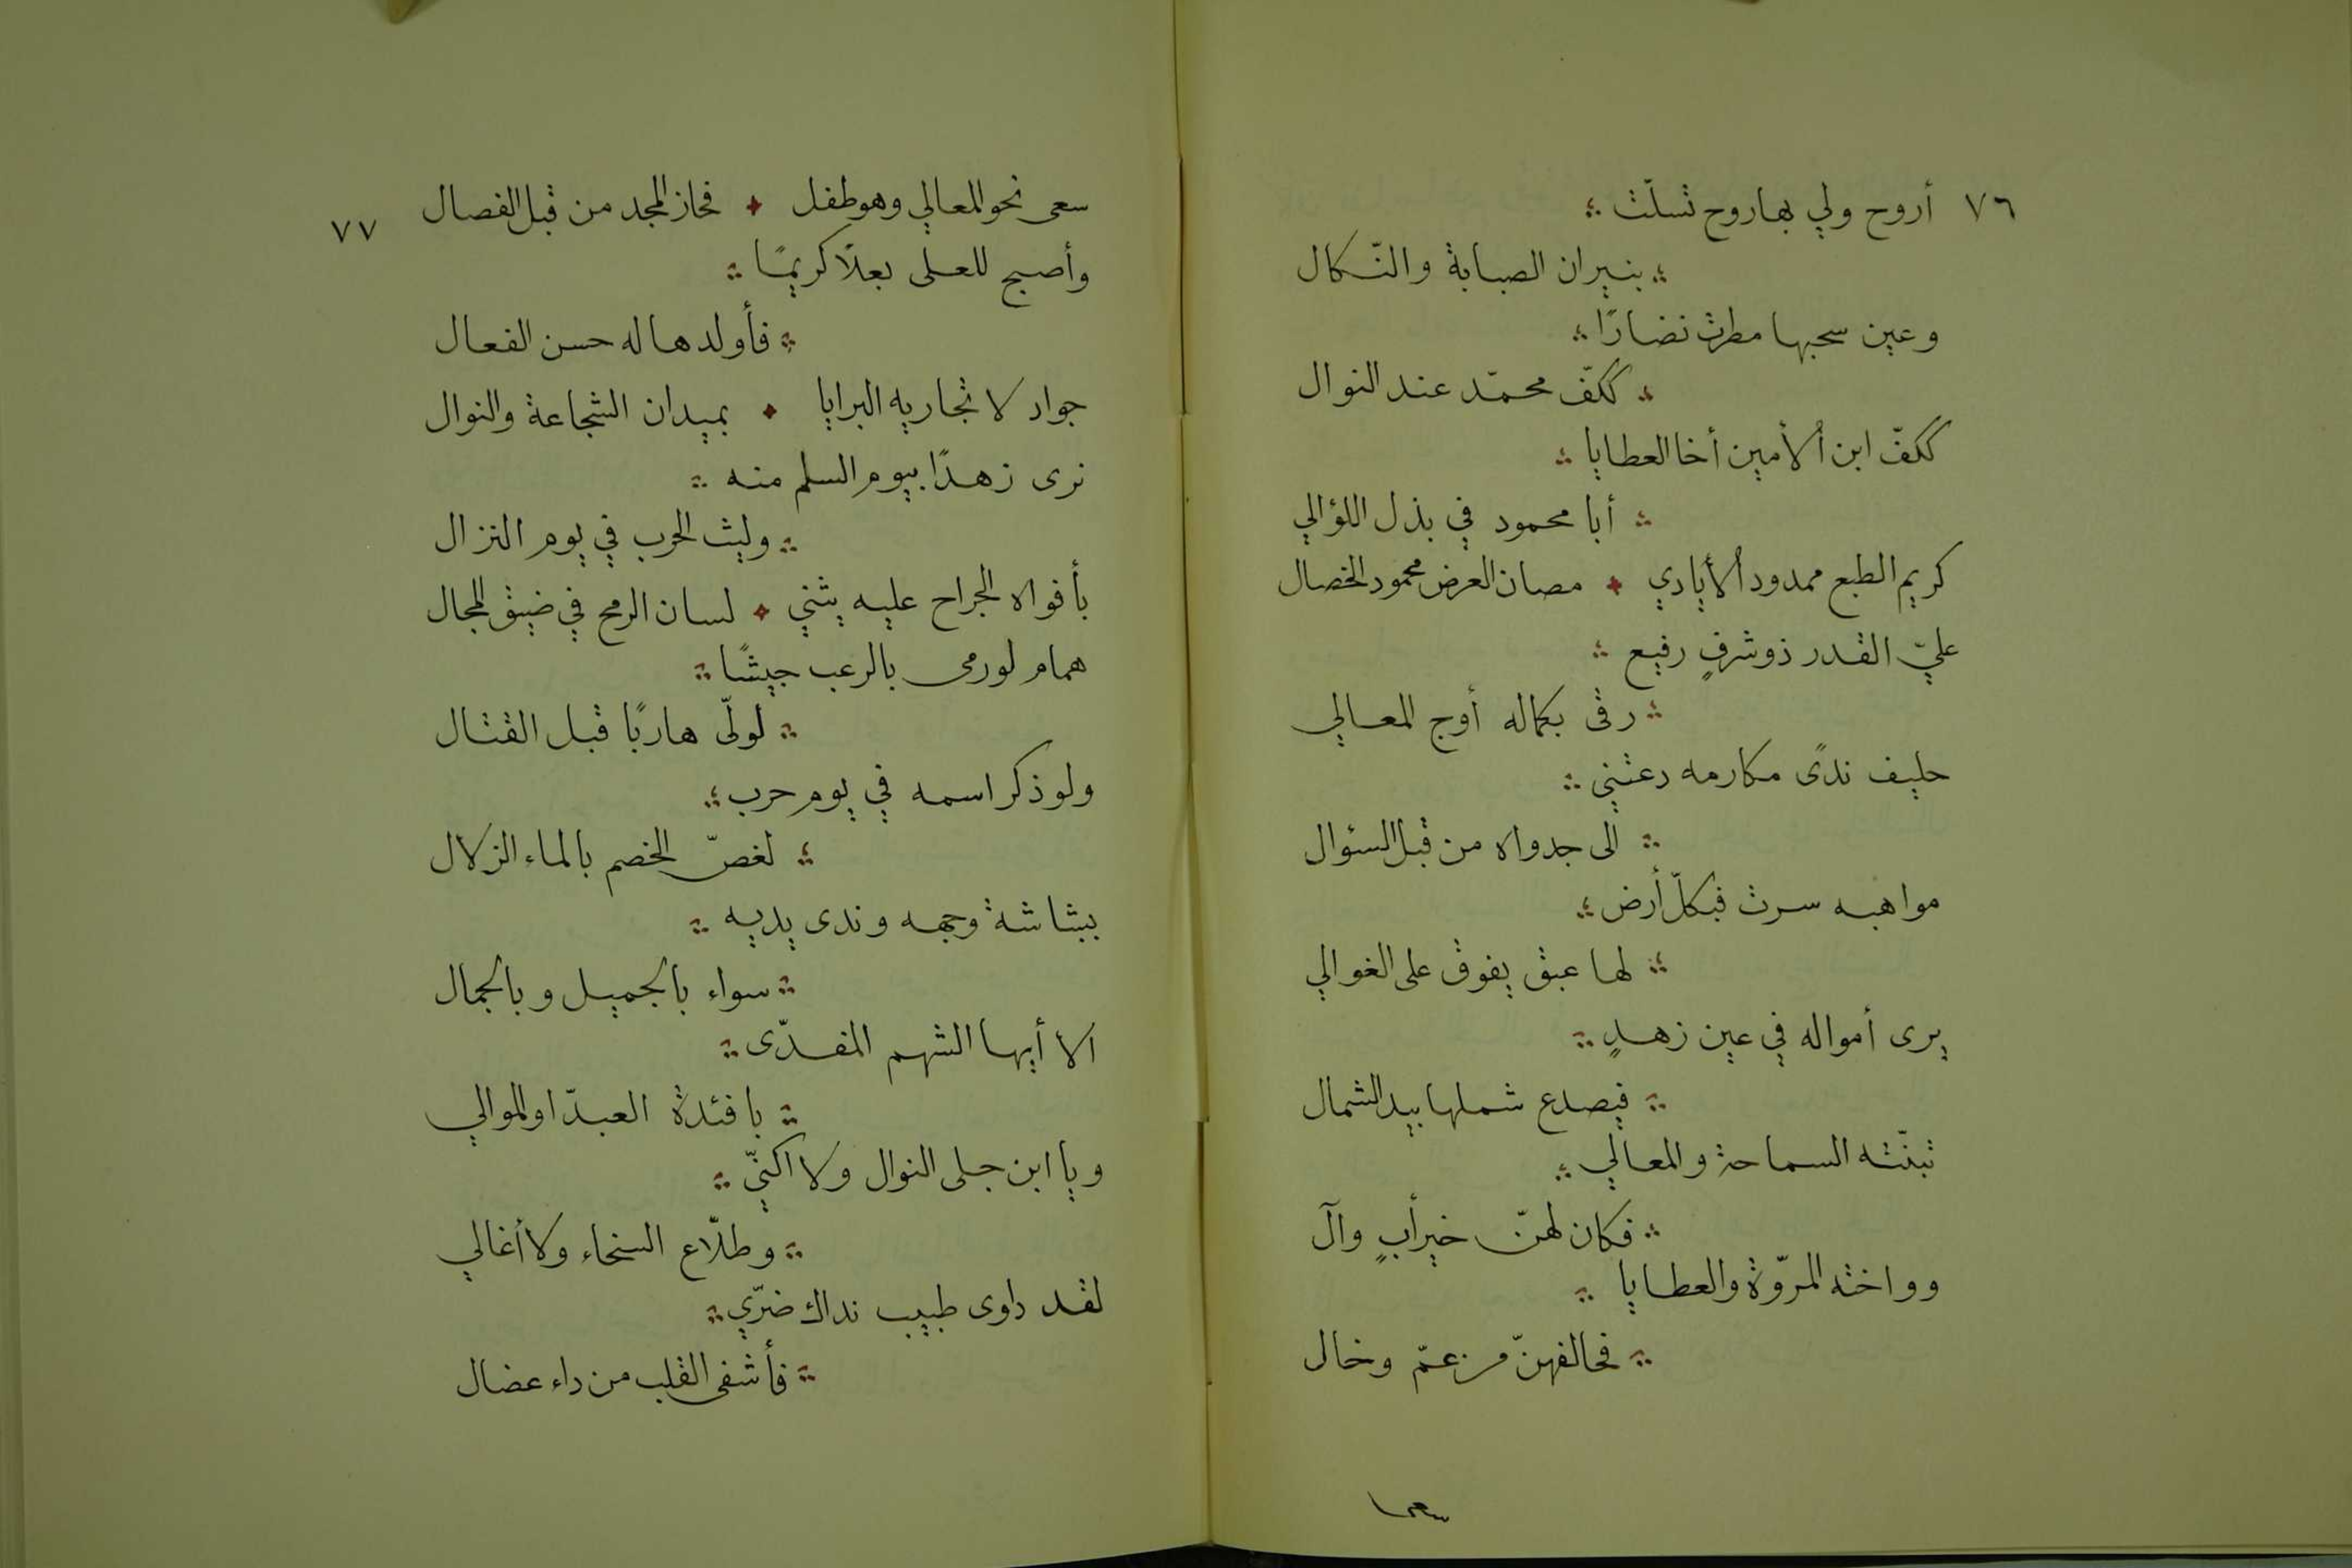 ٧٦ أروح ولي بها روح تسلّت
بنيران الصبابة والنّكال
وعين سحبها مطرت نضارًا
ككفّ محمّد عند النوال
ككفّ ابن الأمين أخا العطايا
أبا محمود في بذل اللؤالي
كريم الطبع ممدود الأيادي مصان العرض محمود الخصال
عليّ القدر ذو شرفٍ رفيع
رقى بكماله أوج المعالي
حليف ندًى مكارمه دعتني
الى جدواه من قبل السئوال
مواهبه سرت فبكلّ أرض
لها عبق يفوق على الغوالي
يرى أمواله في عين زهدٍ
فيصدع شملها بيد الشمال
تبنّته السماحة والمعالي
فكان لهنّ خير أبٍ وآل
وواخته المروّة والعطايا
فحالفهنّ من عمّ وخال
سعى
سعى نحو المعالي وهو طفل فحاز المجد من قبل الفصال ٧٧
وأصبح للعلى بعلًا كريمًا
فأولدها له حسن الفعال
جواد لا تجاريه البرايا بميدان الشجاعة والنوال
نرى زهدًا بيوم السلم منه
وليث الحرب في يوم النزال
بأفواه الجراح عليه يثني لسان الرمح في ضيق المجال
همام لو رمى بالرعب جيشًا
لولّى هاربًا قبل القتال
ولو ذكر اسمه في يوم حرب
لغصّ الخصم بالماء الزلال
ببشاشة وجهه وندى يديه
سواء بالجميل وبالجمال
الا أيها الشهم المفدّى
بافئدة العبدّا والموالي
ويا ابن جلى النوال ولا اكنّي
وطلّاع السخاء ولا أغالي
لقد داوى طبيب نداك ضرّي
فأشفى القلب من داء عضال